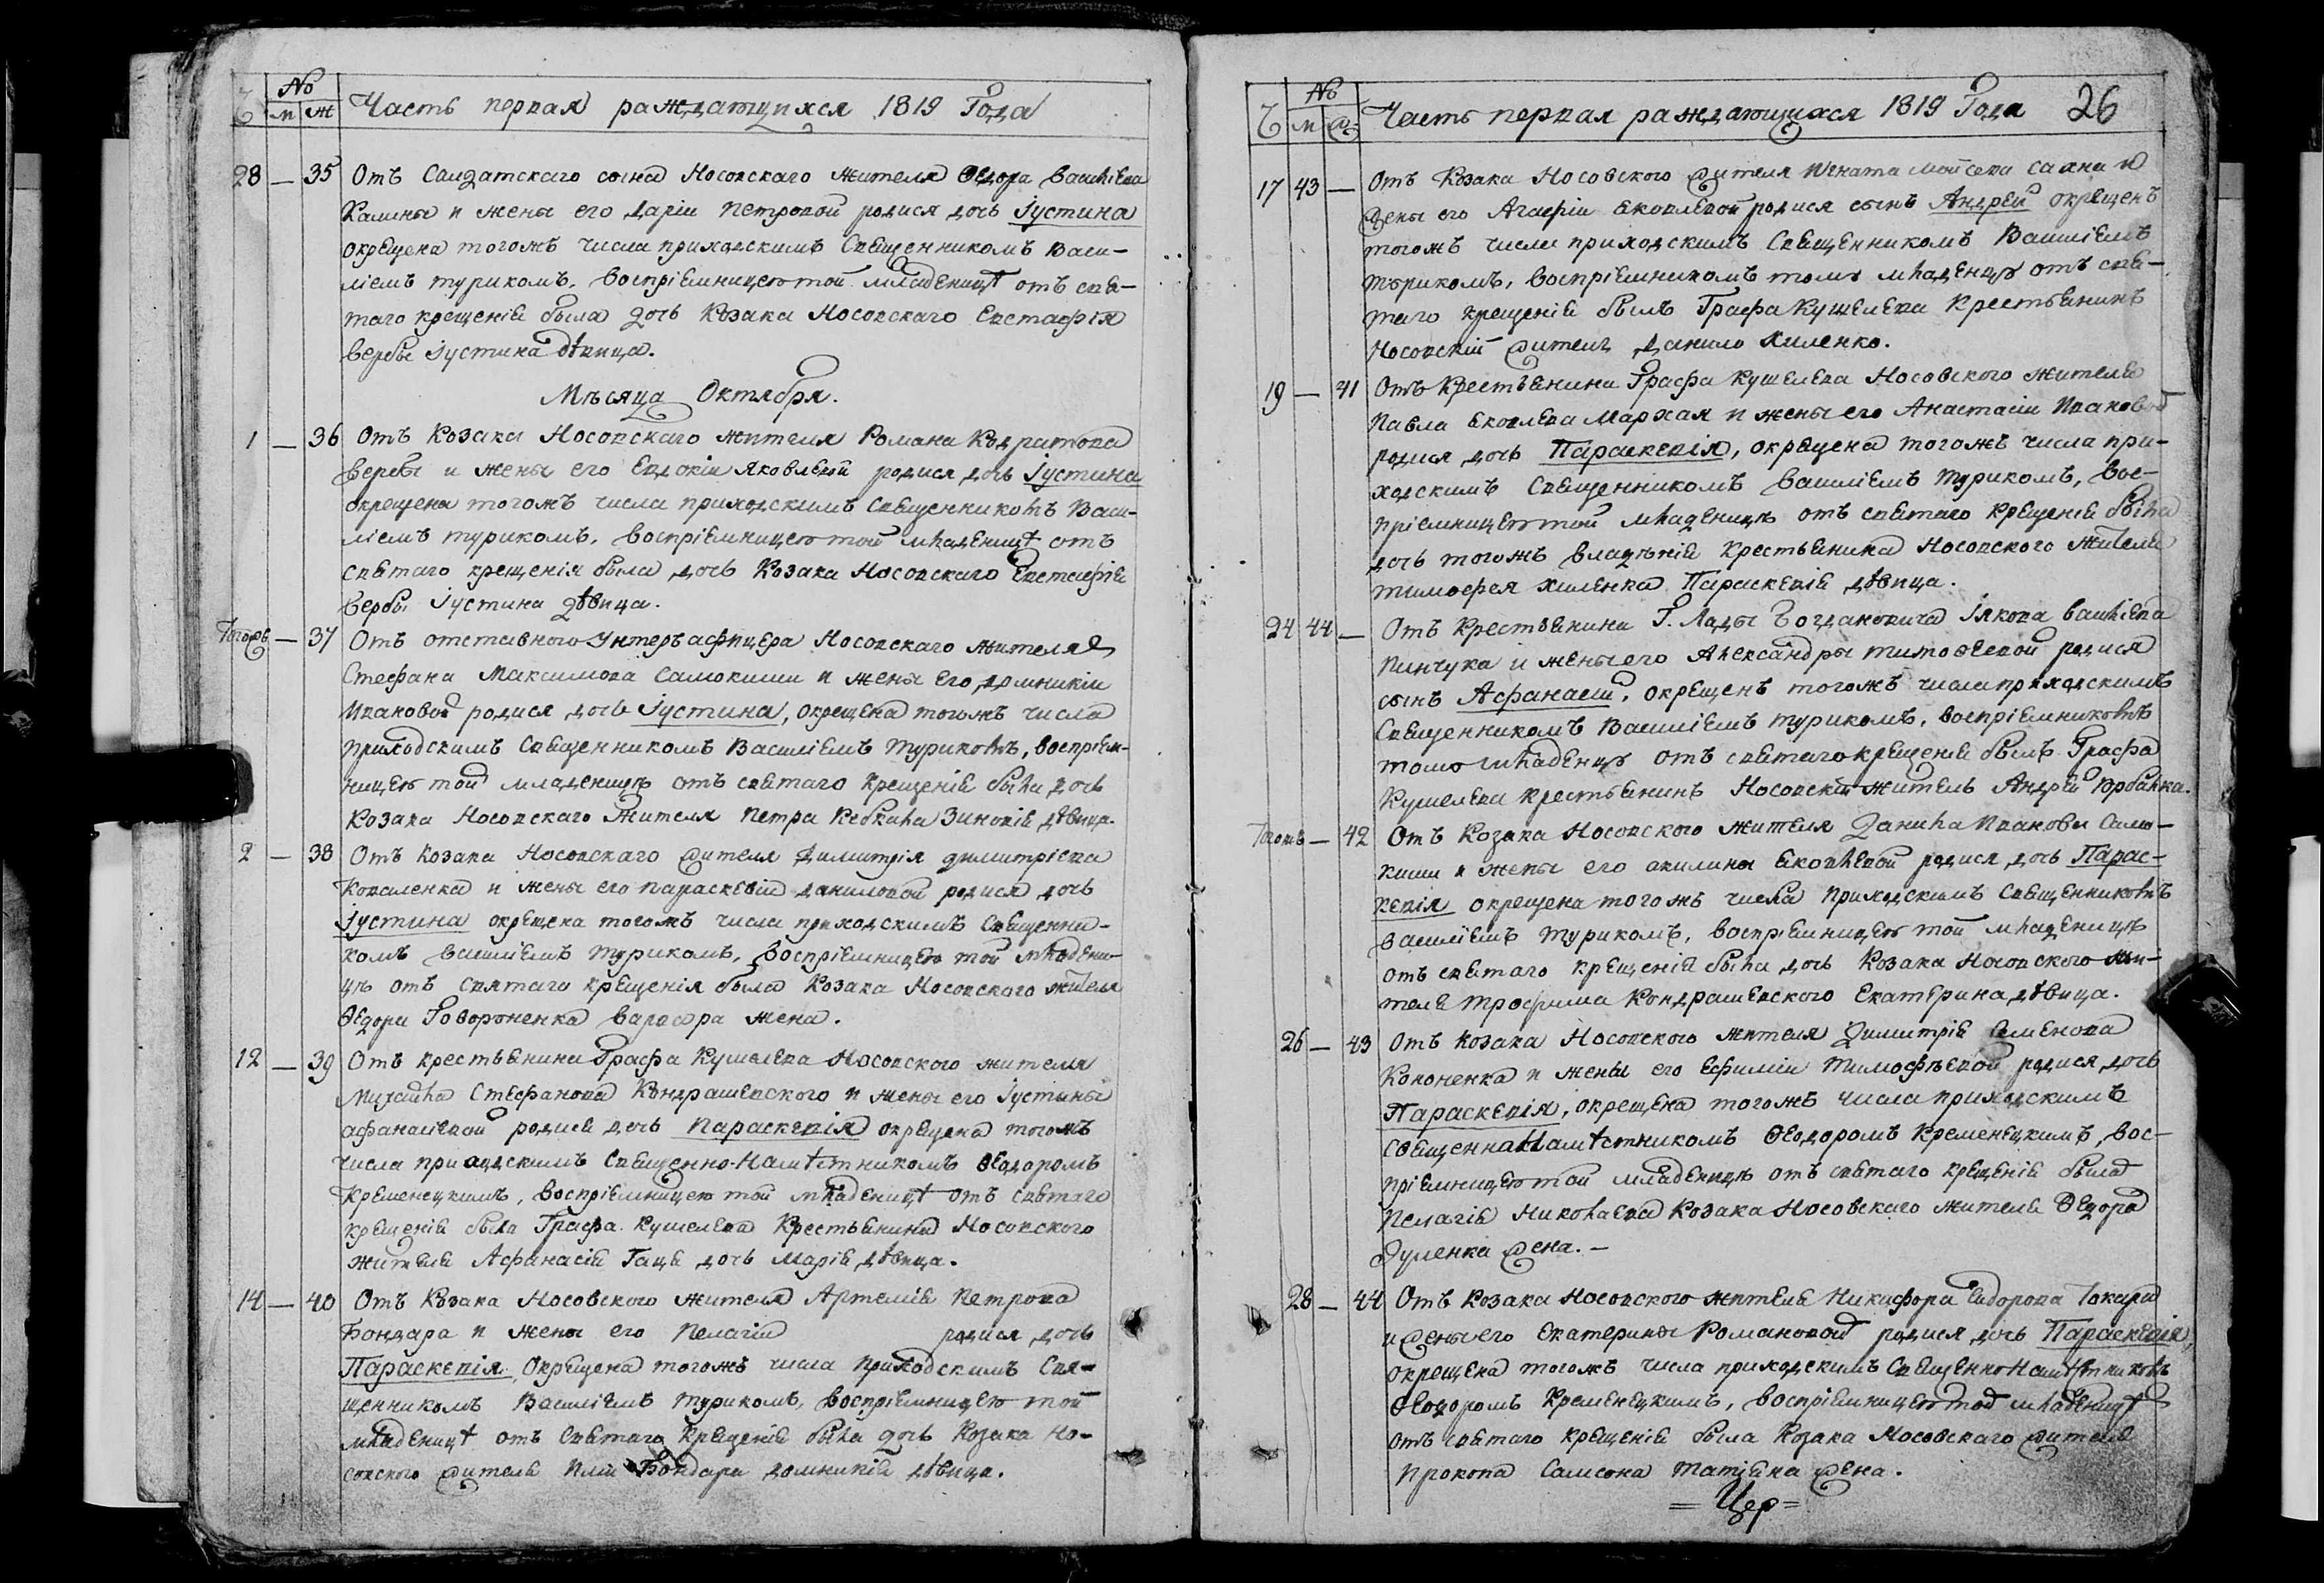 №
Ч м ж Часть первая раждающихся 1819 Года
28 — 35 Отъ Салдатскаго сына Носовскаго жителя Ѳедора Василіева
Калины и жены его Даріи Петровой родися дочь Іустина
окрещена тогожъ числа приходскимъ Священникомъ Васи-
ліемъ Турикомъ, воспріемницею той младеницѣ отъ свя-
таго крещенія была дочь Козака Носовскаго Евстафія
Вербы Іустина дѣвица.
Мѣсяца Октября.
1 — 36 Отъ Козака Носовскаго жителя Романа Кодратова
Вербы и жены его Евдокіи Яковлевой родися дочь Іустина
окрещена тогожъ числа приходскимъ Священникомъ Васи-
ліемъ Турикомъ, воспріемницею той младеницѣ отъ
святаго крещенія была дочь Козака Носовскаго Евстафія
Вербы Іустина дѣвица.
Тогожъ — 37 Отъ отставного Унтеръ афицера Носовскаго жителя
Стефана Максимова Самокиши и жены его Домникіи
Ивановой родися дочь Іустина, окрещена тогожъ числа
приходскимъ Священникомъ Василіемъ Турикомъ, воспріем-
ницею той младеницѣ отъ святаго крещенія была дочь
Козака Носовскаго Жителя Петра Зиновія дѣвица.
2 — 38 Отъ Козака Носовскаго жителя Димитрія Димитріева
Коваленка и жены его Параскевіи Даниловой родися дочь
Іустина окрещена тогожъ числа приходскимъ Священни-
комъ Василіемъ Турикомъ, воспріемницею той младени-
цѣ отъ Святаго крещенія была Козака Носовского жителя
Ѳедора Говороненка Варвара жена.
12 — 39 Отъ крестьянина Графа Кушелева Носовского жителя
Михаила Стефанова Кондрашевского и жены его Іустины
Афанасіевой родися дочь Параскевія окрещена тогожъ
числа приходскимъ Священно-Намѣстникомъ Ѳеодоромъ
Кременецкимъ, воспріемницею той младеницѣ отъ святаго
крещенія была Графа Кушелева Крестьянина Носовского
жителя Афанасія Гаця дочь Марія дѣвица.
14 — 40 Отъ Козака Носовского жителя Артемія Петрова
Бондара и жены его Пелагіи родися дочь
Параскевія Окрещена тогожъ числа Приходскимъ Свя-
щенникомъ Василіемъ Турикомъ, воспріемницею той
младеницѣ отъ Святаго крещенія была дочь Козака Но-
совского жителя Иліи Бондара Домникія дѣвица.
№
Ч м ж Часть первая раждающихся 1819 Года 26
17 43 — Отъ Козака Носовского жителя Игната Мойсеева и
жены его Агафіи Яковлевой родися сынъ Андрей окрещенъ
тогожъ числа приходскимъ Священникомъ Василіемъ
Турикомъ, воспріемникомъ тому младенцу отъ свя-
таго крещенія былъ Графа Кушелева Крестьянинъ
Носовскій житель Данило Хиленко.
19 — 41 Отъ Крестьянина Графа Кушелева Носовского жителя
Павла Яковлева Мархая и жены его Анастасіи Ивановой
родися дочь Параскевія, окрещена тогожъ числа при-
ходскимъ Священникомъ Василіемъ Турикомъ, вос-
пріемницею той младеницѣ отъ святаго крещенія была
дочь тогожъ владѣнія Крестьянина Носовского жителя
Тимофея Хиленка Параскевія дѣвица.
24 44 — Отъ крестьянина Г. Лады Богдановича Іякова Василіева
Пинчука и жены его Александры Тимоѳеевой родися
сынъ Афанасій, окрещенъ тогожъ числа приходскимъ
Священникомъ Василіемъ Турикомъ, воспріемникомъ
тому младенцу отъ святаго крещенія былъ Графа
Кушелева крестьянинъ Носовскій житель Андрей Юрбанка.
Тогожъ — 42 Отъ Козака Носовского жителя Данила Иванова Само-
киши и жены его Акилины Яковлевой родися дочь Парас-
кевія окрещена тогожъ числа Приходскимъ Священникомъ
Василіемъ Турикомъ, воспріемницею той младеницѣ
отъ святаго крещенія была дочь Козака Носовского жи-
теля Трофима Кондрашевского Екатерина дѣвица.
26 — 43 Отъ Козака Носовского жителя Димитрія Семенова
Кононенка и жены его Ефиміи Тимофѣевой родися дочь
Параскевія, окрещена тогожъ числа приходскимъ
СвященнаНамѣстникомъ Ѳеодоромъ Кременецкимъ, вос-
пріемницею той младеницѣ отъ святаго крещенія была
Пелагія Николаева Козака Носовскаго жителя Ѳедора
Думенка жена. —
28 — 44 Отъ Козака Носовского жителя Никифора Сидорова Токара
и жены его Екатерины Романовой родися дочь Параскевія
окрещена тогожъ числа приходскимъ СвященноНамѣстникомъ
Ѳеодоромъ Кременецкимъ, воспріемницею той младеницѣ
отъ святаго крещенія была Козака Носовскаго жителя
Прокопа Самсона Татіяна жена.
= Цер =